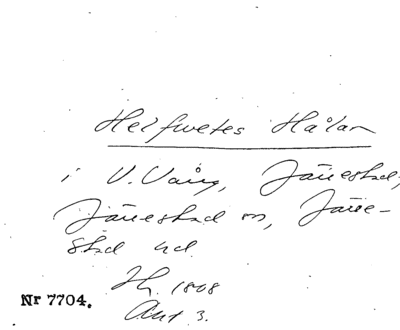 Helfwetes Hålan
i V. Vång, Järrestad,
Järrestad sn, Järre-
stad hd.
Lh. 1808
Akt 3.
Nr 7704.